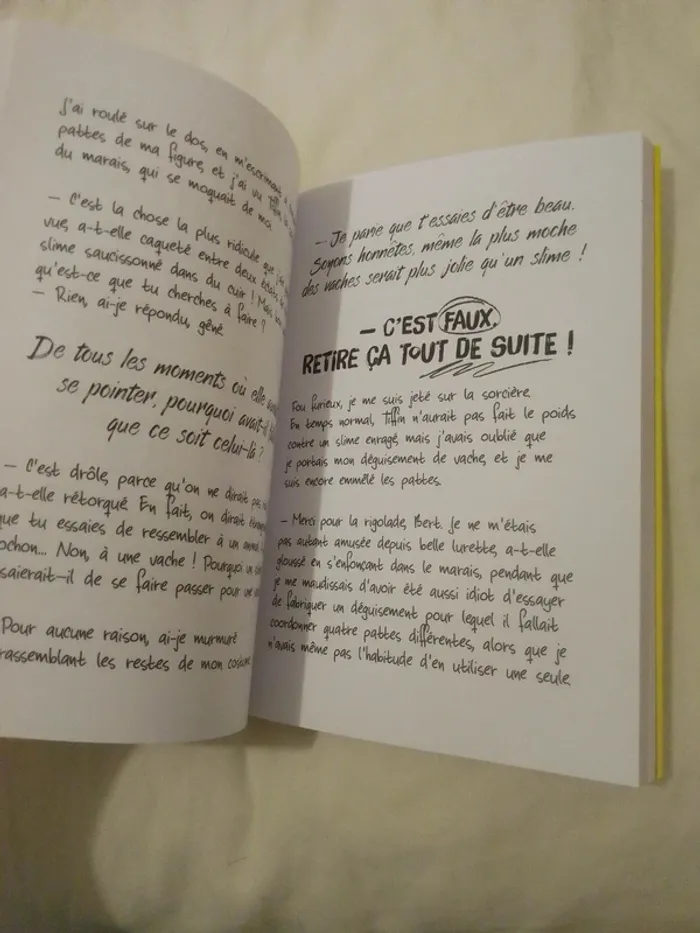 J'ai roulé sur le dos, en m'escrimant à
pattes de ma figure, et j'ai vu Tiffin
du marais, qui se moquait de moi.
– C'est la chose la plus ridicule que
vue, a-t-elle caqueté entre deux éclats de
slime saucissonné dans du cuir ! Mais
qu'est-ce que tu cherches à faire ?
– Rien, ai-je répondu, gêné.
De tous les moments où elle
se pointer, pourquoi avait-il
que ce soit celui-là ?
– C'est drôle, parce qu'on ne dirait pas
a-t-elle rétorqué. En fait, on dirait
que tu essaies de ressembler à un
ochon... Non, à une vache ! Pourquoi un
saierait-il de se faire passer pour une
Pour aucune raison, ai-je murmuré
rassemblant les restes de mon costume.
– Je parie que t'essaies d'être beau.
Soyons honnêtes, même la plus moche
des vaches serait plus jolie qu'un slime !
– C'EST FAUX,
RETIRE ÇA TOUT DE SUITE !
Fou furieux, je me suis jeté sur la sorcière.
En temps normal, Tiffin n'aurait pas fait le poids
contre un slime enragé, mais j'avais oublié que
je portais mon déguisement de vache, et je me
suis encore emmêlé les pattes.
– Merci pour la rigolade, Bert. Je ne m'étais
pas autant amusée depuis belle lurette, a-t-elle
gloussé en s'enfonçant dans le marais, pendant que
je me maudissais d'avoir été aussi idiot d'essayer
de fabriquer un déguisement pour lequel il fallait
coordonner quatre pattes différentes, alors que je
n'avais même pas l'habitude d'en utiliser une seule.